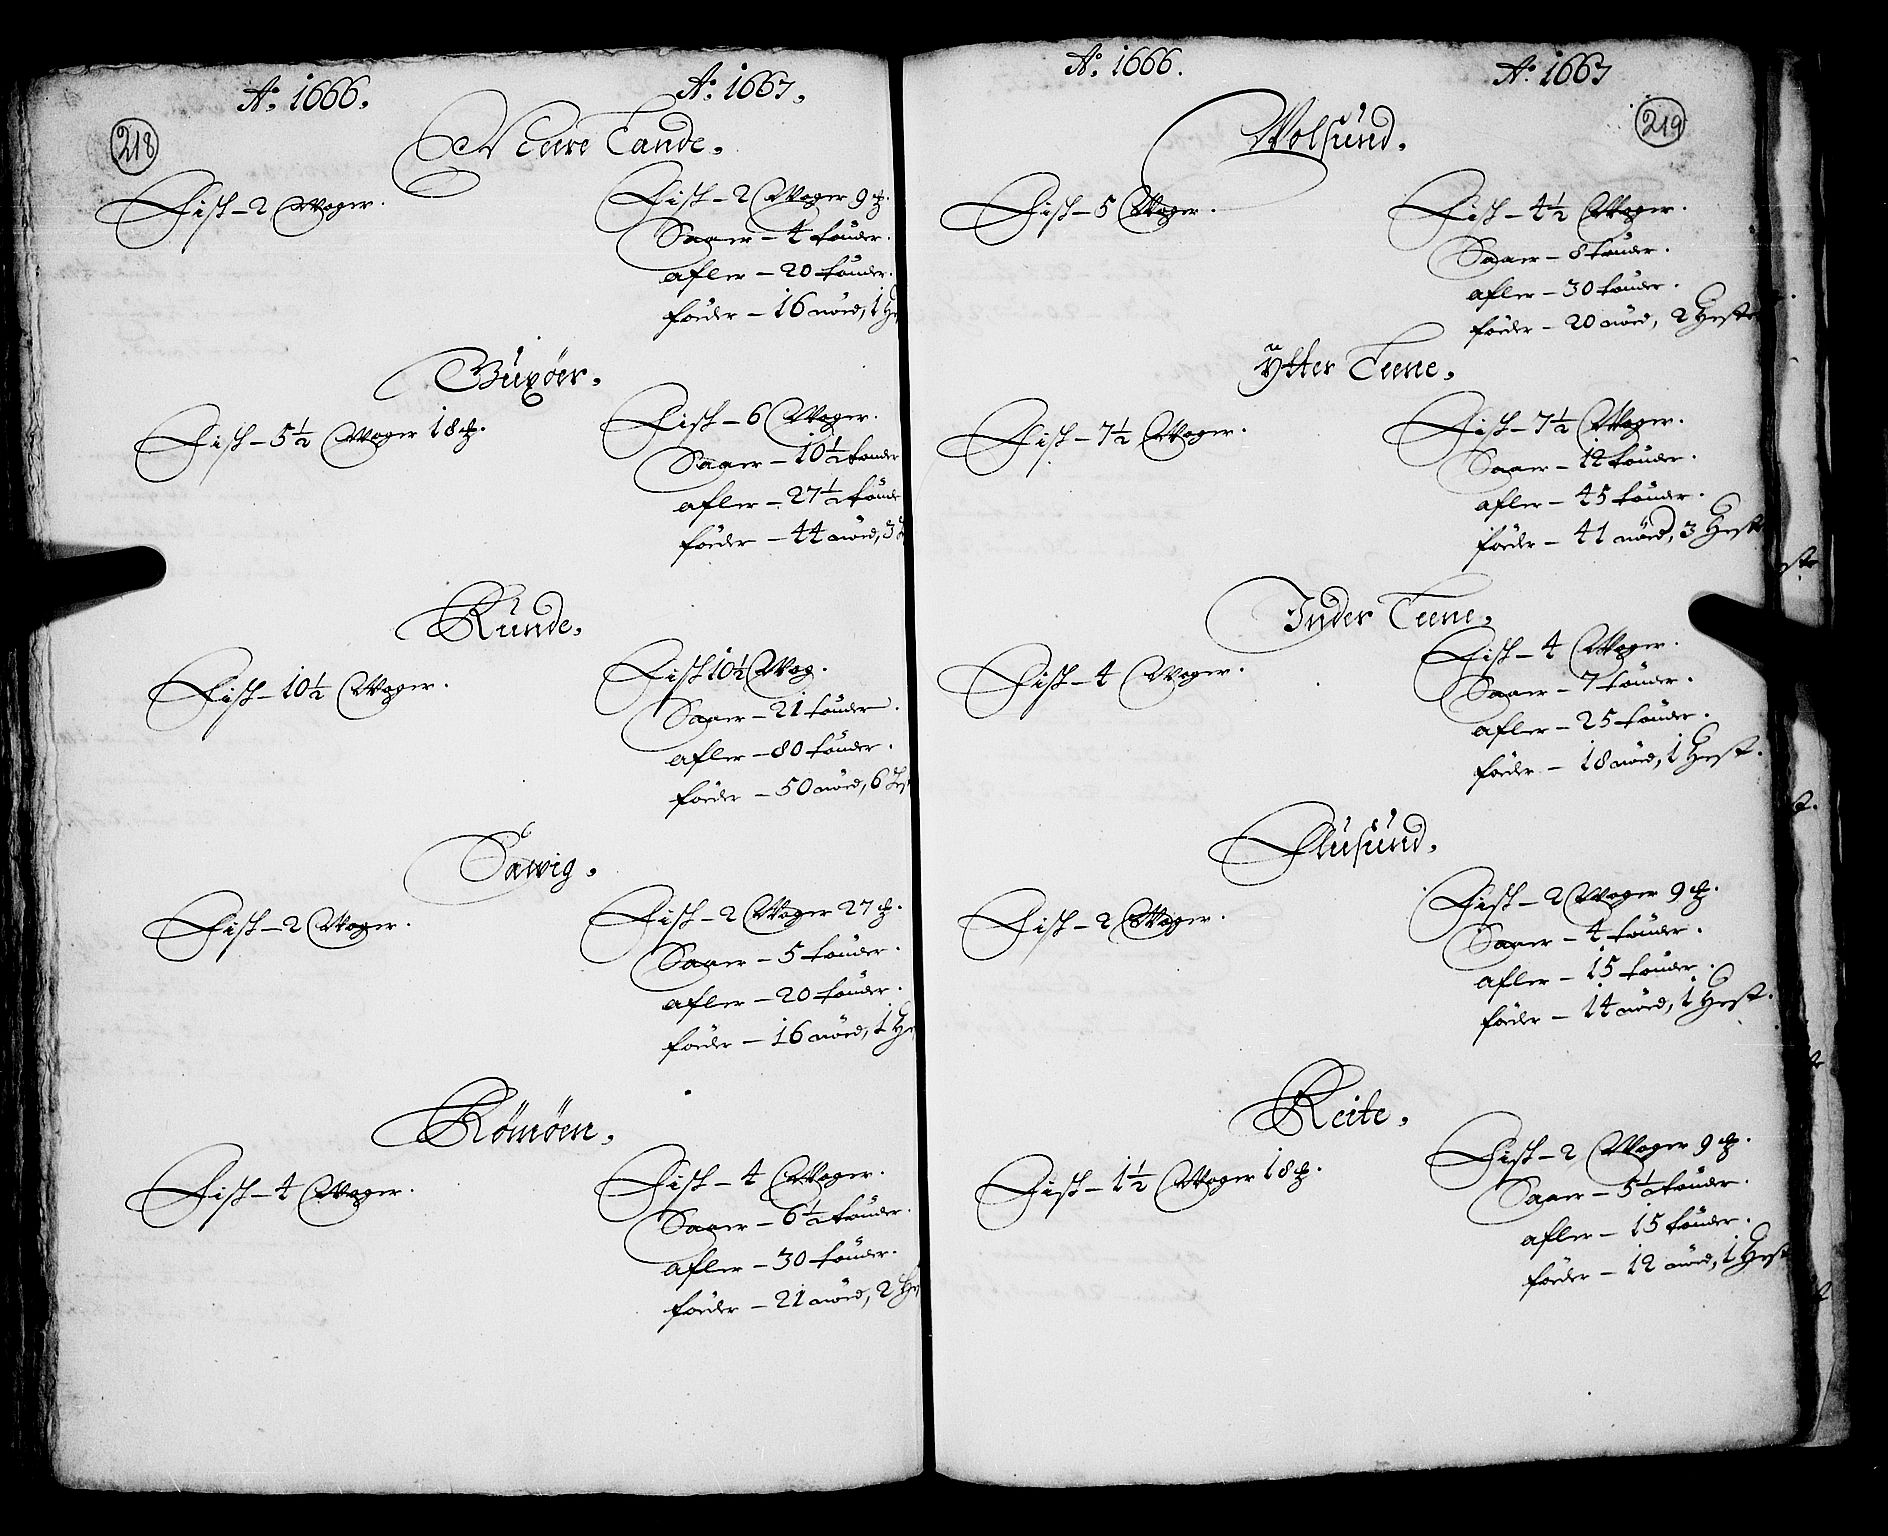 Aº. 1666. Aº. 1667.
218
Neere Tande.
Fisk – 2 Woger. Fisk – 2 Woger 9 ℔.
Saaer – 4 tønder.
afler – 20 tønder.
føeder – 16 nöed, 1 He
Büxøer.
Fisk – 5½ Woger 18 ℔. Fisk – 6 Woger.
Saaer – 10½ tønder
afler – 27½ tønde
føeder – 44 nöed, 3
Runde.
Fisk – 10½ Woger. Fisk 10½ Wog.
Saaer – 21 tønder.
afler – 80 tønder.
føeder – 50 nöed, 6 Hest
Sawig.
Fisk – 2 Woger. Fisk – 2 Woger 27 ℔.
Saaer – 5 tønder.
afler – 20 tønder.
føeder – 16 nöed, 1 He
Römöen.
Fisk – 4 Woger. Fisk – 4 Woger.
Saaer – 6½ tønder.
afler – 30 tønder.
føeder – 21 nöed, 2 He
Aº. 1666. Aº. 1667
219
Wolsund.
Fisk – 5 Woger. Fisk – 4½ Woger.
Saaer – 8 tønder.
afler – 30 tønder.
føeder – 20 nöed, 2 Heste
Ytter Teene.
Fisk – 7½ Woger. Fisk – 7½ Woger.
Saaer – 12 tønder.
afler – 45 tønder.
føeder – 41 nöed, 3 Hest
Inder Teene.
Fisk – 4 Woger. Fisk – 4 Woger.
Saaer – 7 tønder.
afler – 25 tønder.
føeder – 18 nöed, 1 Hest.
Flusund.
Fisk – 2 Woger. Fisk – 2 Woger 9 ℔.
Saaer – 4 tønder.
afler – 15 tønder.
føeder – 14 nöed, 1 Hest.
Reite.
Fisk – 1½ Woger 18 ℔. Fisk – 2 Woger 9 ℔.
Saaer – 5½ tønder.
afler – 15 tønder.
føeder – 12 nöed, 1 Hest